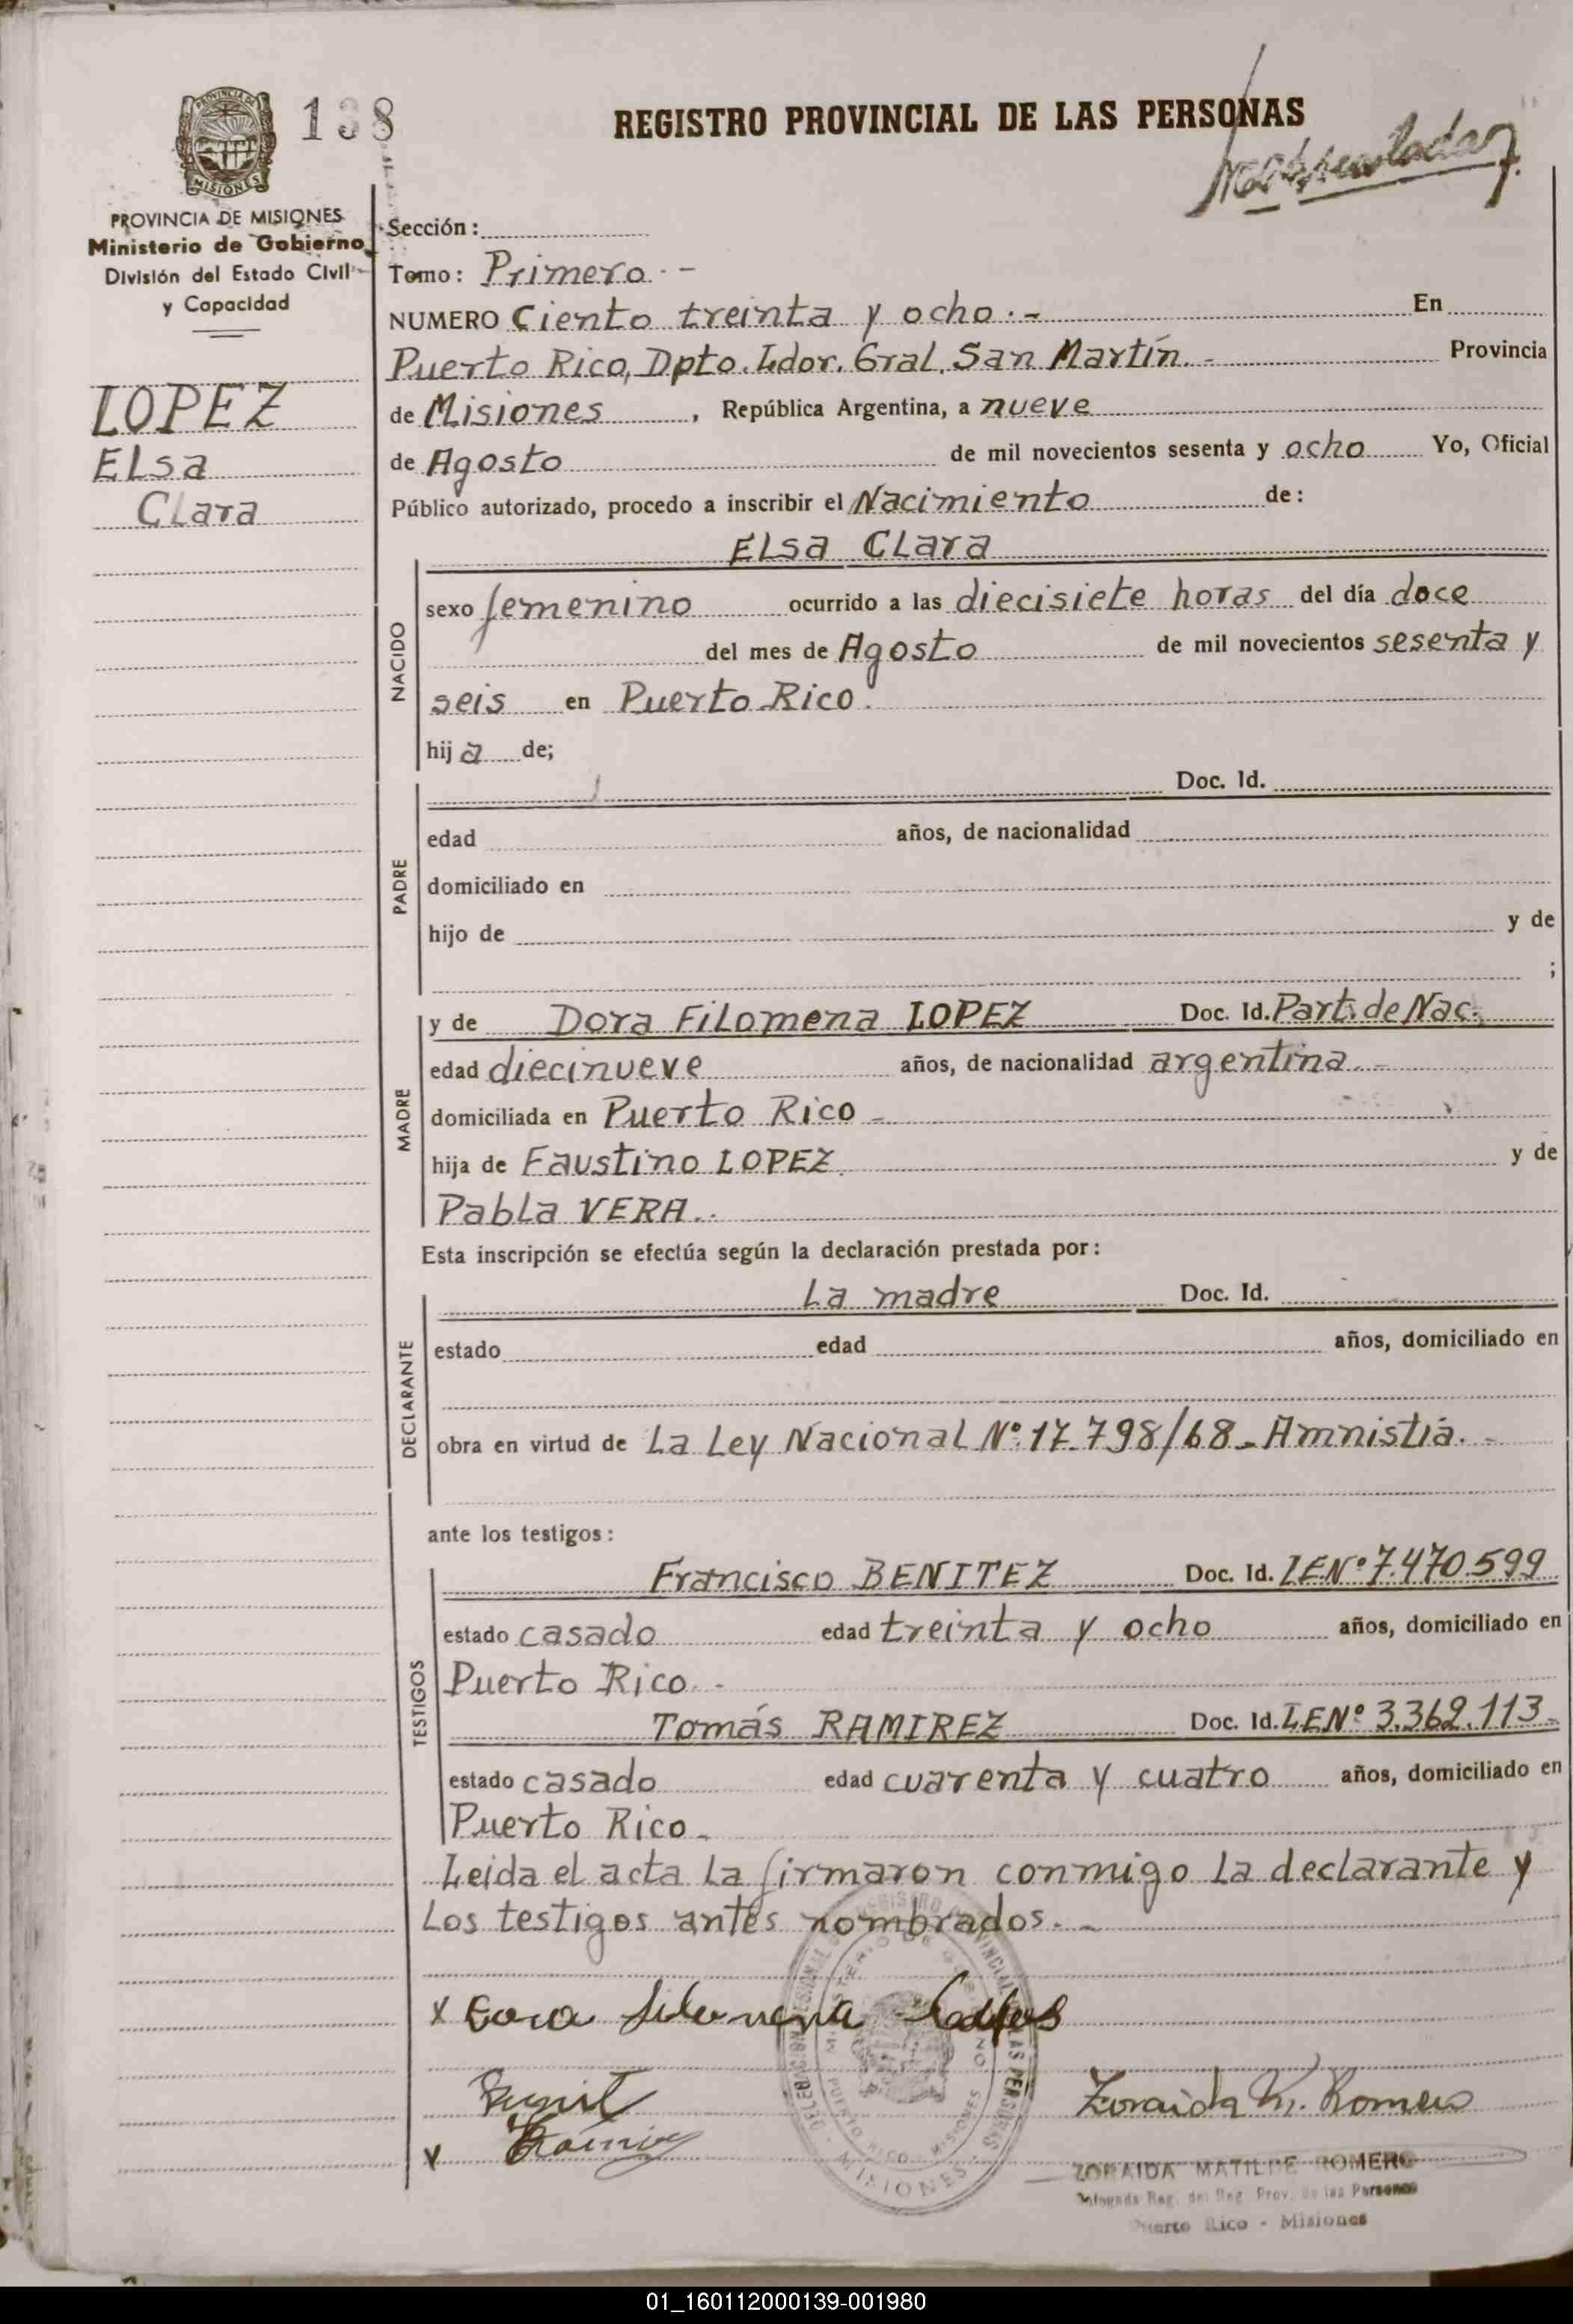 138
REGISTRO PROVINCIAL DE LAS PERSONAS
PROVINCIA DE MISIONES
MISIONES
PROVINCIA DE MISIONES
Ministerio de Gobierno
División del Estado Civil
y Capacidad
LOPEZ
Elsa
Clara
Sección:
Tomo: Primero.-
NUMERO Ciento treinta y ocho.- En
Puerto Rico, Dpto. Ldor. Gral. San Martín.- Provincia
de Misiones, República Argentina, a nueve
de Agosto de mil novecientos sesenta y ocho Yo, Oficial
Público autorizado, procedo a inscribir el Nacimiento de:
Elsa Clara
NACIDO
sexo femenino ocurrido a las diecisiete horas del día doce
del mes de Agosto de mil novecientos sesenta y
seis en Puerto Rico.
hija de;
PADRE
Doc. Id.
edad años, de nacionalidad
domiciliado en
hijo de y de
;
MADRE
y de Dora Filomena LOPEZ Doc. Id. Part. de Nac.
edad diecinueve años, de nacionalidad argentina.-
domiciliada en Puerto Rico -
hija de Faustino LOPEZ. y de
Pabla VERA.
Esta inscripción se efectúa según la declaración prestada por:
DECLARANTE
La madre Doc. Id.
estado edad años, domiciliado en
obra en virtud de La Ley Nacional Nº 17.798/68 - Amnistía.-
ante los testigos:
TESTIGOS
Francisco BENITEZ Doc. Id. LE Nº 7.470.599
estado casado edad treinta y ocho años, domiciliado en
Puerto Rico.-
Tomás RAMIREZ Doc. Id. L.E Nº 3.362.113-
estado casado edad cuarenta y cuatro años, domiciliado en
Puerto Rico -
Leida el acta la firmaron conmigo la declarante y
los testigos antes nombrados.-
x Dora Filomena
Zoraida M. Romero
x Ramirez
ZORAIDA MATILDE ROMERO
Delegada Reg. del Reg. Prov. de las Personas
Puerto Rico - Misiones
01_160112000139-001980